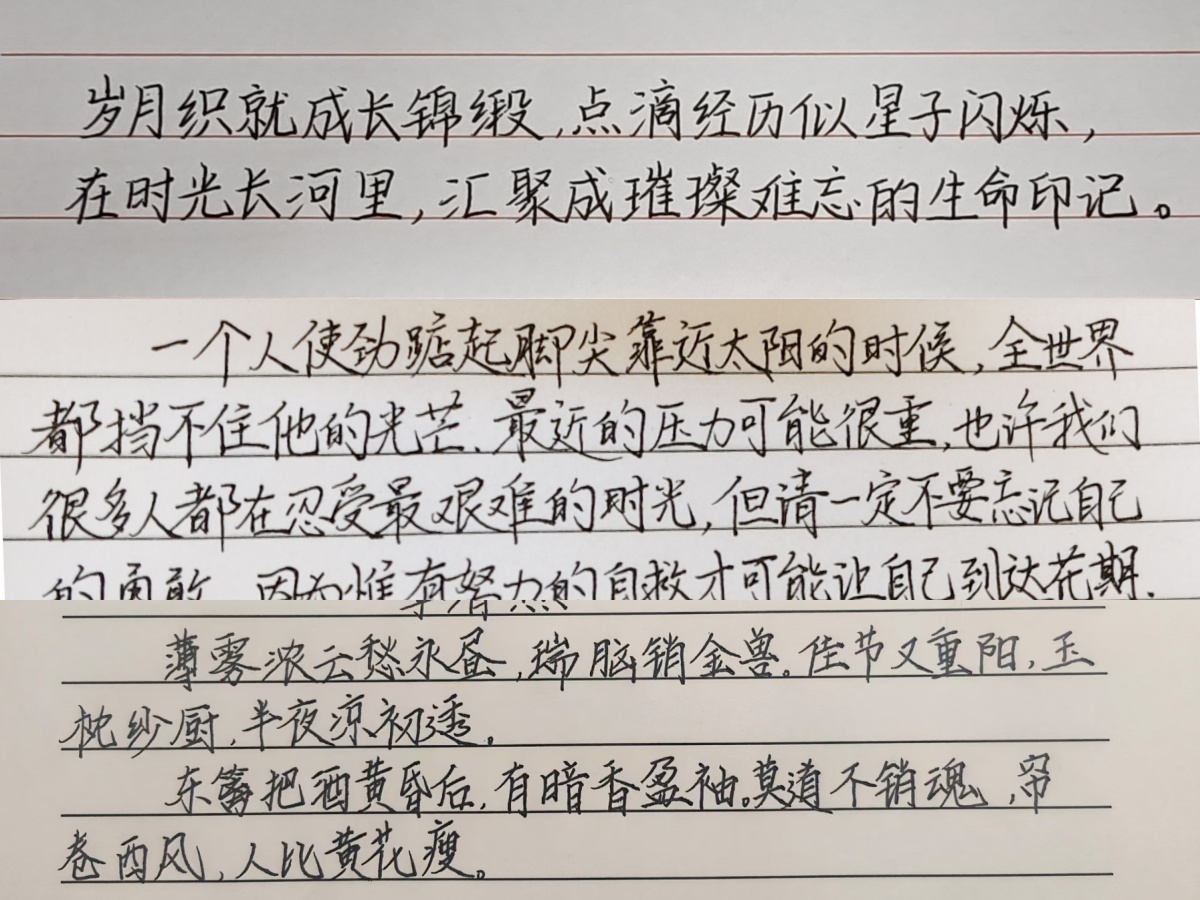 岁月织就成长锦缎,点滴经历似星子闪烁,
在时光长河里,汇聚成璀璨难忘的生命印记。
一个人使劲踮起脚尖靠近太阳的时候,全世界
都挡不住他的光芒.最近的压力可能很重,也许我们
很多人都在忍受最艰难的时光,但请一定不要忘记自己
的勇敢 因为惟有努力的自救才可能让自己到达花期.
薄雾浓云愁永昼,瑞脑销金兽。佳节又重阳,玉
枕纱厨,半夜凉初透。
东篱把酒黄昏后,有暗香盈袖。莫道不销魂,帘
卷西风,人比黄花瘦。